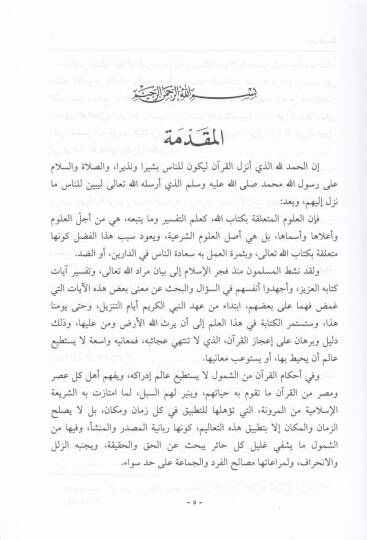 بسم الله الرحمن الرحيم
المقدمة
إن الحمد لله الذي أنزل القرآن ليكون للناس بشيرا ونذيرا، والصلاة والسلام
على رسول الله محمد صلى الله عليه وسلم الذي أرسله الله تعالى ليبين للناس ما
نزل إليهم، وبعد:
فإن العلوم المتعلقة بكتاب الله، كعلم التفسير وما يتبعه، هي من أجلّ العلوم
وأعلاها وأسماها، بل هي أصل العلوم الشرعية، ويعود سبب هذا الفضل كونها
متعلقة بكتاب الله تعالى، وبثمرة العمل به سعادة الناس في الدارين، أو الضد.
ولقد نشط المسلمون منذ فجر الإسلام إلى بيان مراد الله تعالى، وتفسير آيات
كتابه العزيز، وأجهدوا أنفسهم في السؤال والبحث عن معنى بعض هذه الآيات التي
غمض فهما على بعضهم، ابتداء من عهد النبي الكريم أيام التنزيل، وحتى يومنا
هذا، وستستمر الكتابة في هذا العلم إلى أن يرث الله الأرض ومن عليها، وذلك
دليل وبرهان على إعجاز القرآن، الذي لا تنتهي عجائبه، فمعانيه واسعة لا يستطيع
عالم أن يحيط بها، أو يستوعب معانيها.
وفي أحكام القرآن من الشمول لا يستطيع عالم إدراكه، ويفهم أهل كل عصر
ومصر من القرآن ما تقوم به حياتهم، وينير لهم السبل، لما امتازت به الشريعة
الإسلامية من المرونة، التي تؤهلها للتطبيق في كل زمان ومكان، بل لا يصلح
الزمان والمكان إلا بتطبيق هذه التعاليم، كونها ربانية المصدر والمنشأ، وفيها من
الشمول ما يشفي غليل كل حائر يبحث عن الحق والحقيقة، ويجنبه الزلل
والانحراف، ولمراعاتها مصالح الفرد والجماعة على حد سواء.
- ٥ -